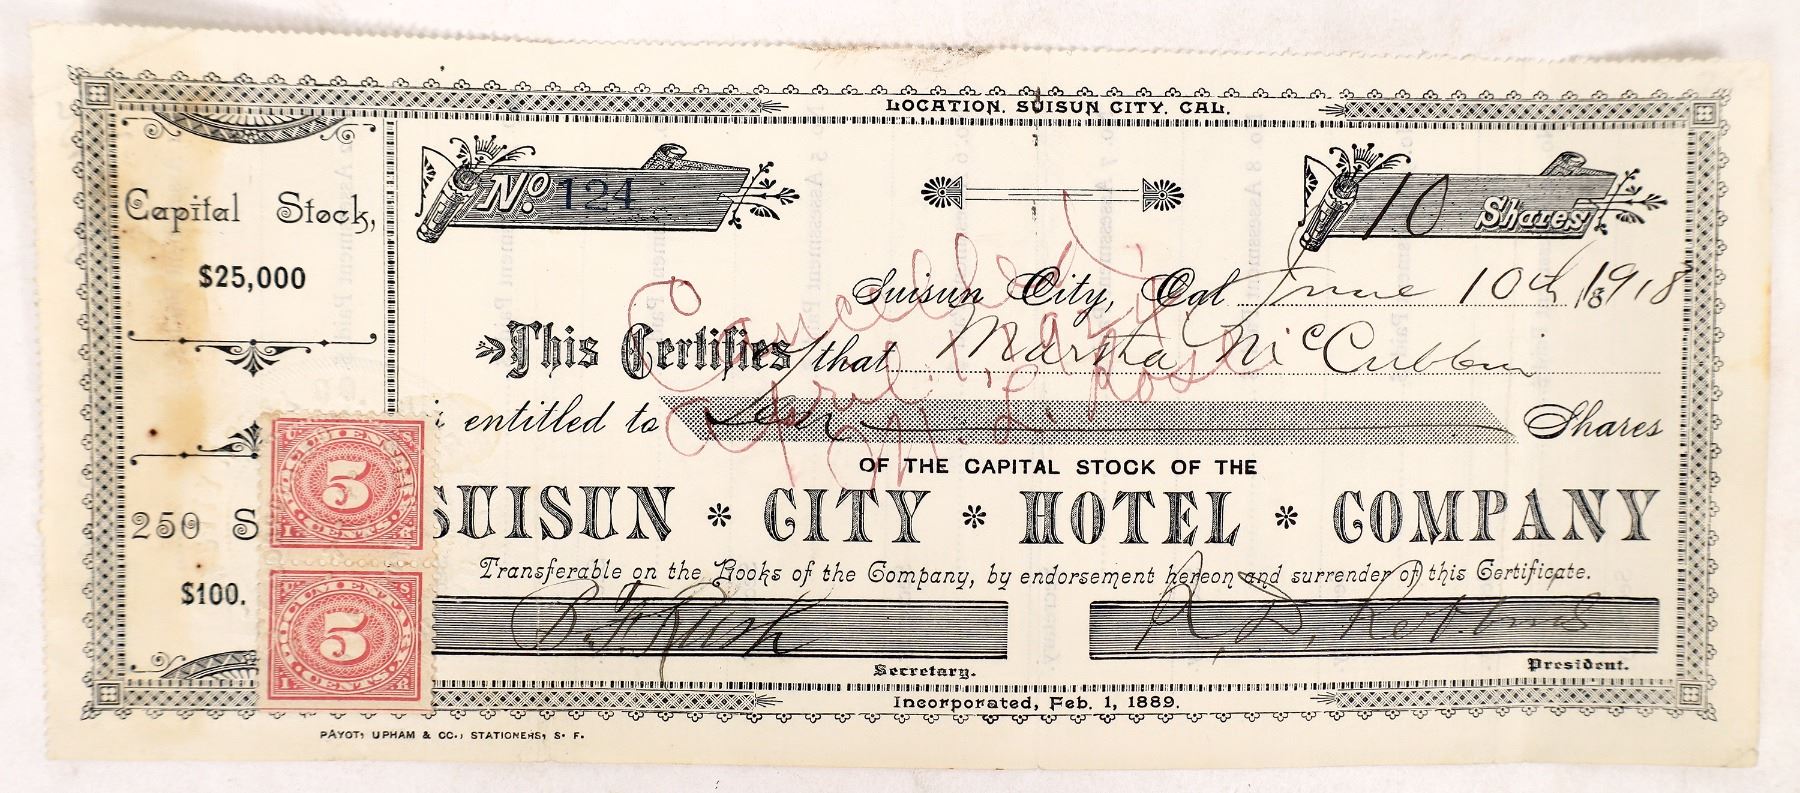 LOCATION. SUISUN CITY. CAL.
Capital Stock,
$25,000
250 S
$100.
No. 124
10 Shares
Suisun City, Cal June 10th 1918
This Certifies that Martha McCubbin
entitled to Ten Shares
OF THE CAPITAL STOCK OF THE
SUISUN * CITY * HOTEL * COMPANY
Transferable on the Books of the Company, by endorsement hereon and surrender of this Certificate.
B. F. Rush
Secretary.
R. D. Robbins
President.
Incorporated, Feb. 1, 1889.
PAYOT, UPHAM & CO., STATIONERS, S. F.
Cancelled
April
DOCUMENTARY
5
CENTS
DOCUMENTARY
5
CENTS